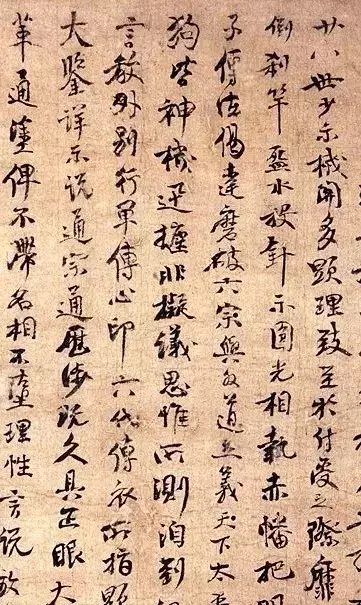 廿八世少示機關多顯理致至於付受之際靡
倒刹竿盌水投針示圓光相執赤幡把明
子傳法偈達磨破六宗與外道立義天下太平
狗皆神機迅捷非擬議思惟所測洎到
言教外別行單傳心印六代傳衣所指顯
大鑒詳示說通宗通歷涉既久具正眼大
革通塗俾不滯名相不墮理性言說放